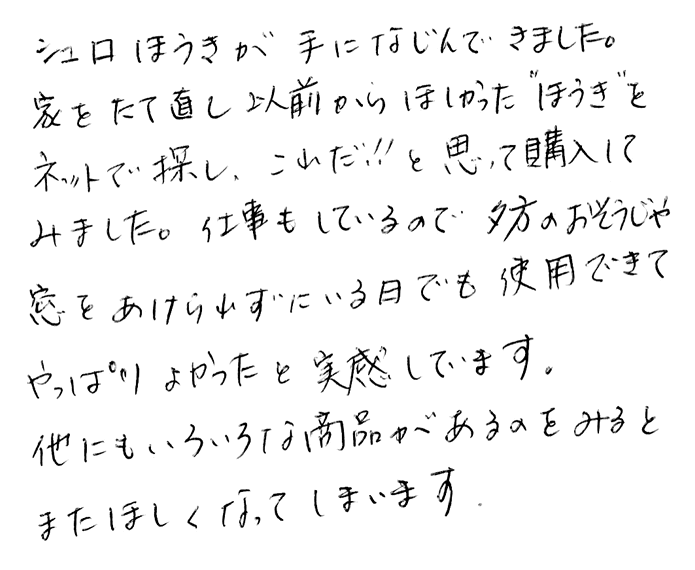 シュロほうきが手になじんできました。
家をたて直し以前からほしかった"ほうき"を
ネットで探し、これだ!!と思って購入して
みました。仕事もしているので夕方のおそうじや
窓をあけられずにいる日でも使用できて
やっぱりよかったと実感しています。
他にもいろいろな商品があるのをみると
またほしくなってしまいます.